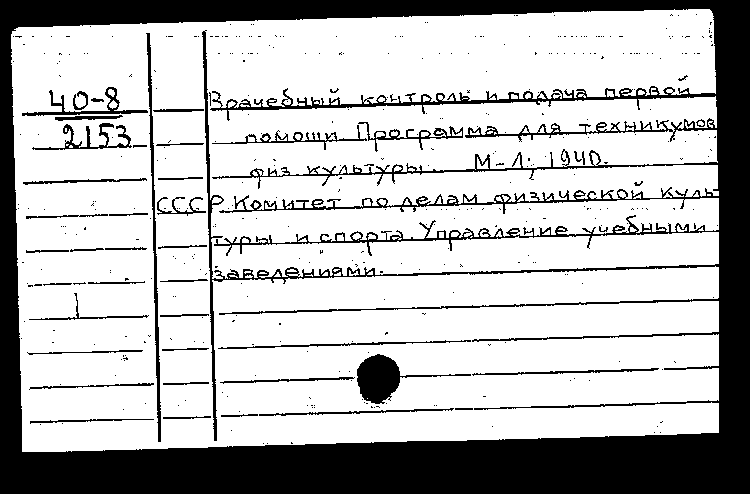 40-8
2153
Врачебный контроль и подача первой
помощи. Программа для техникумов
физ. культуры. М-Л; 1940.
СССР. Комитет по делам физической куль
туры и спорта. Управление учебными
заведениями.